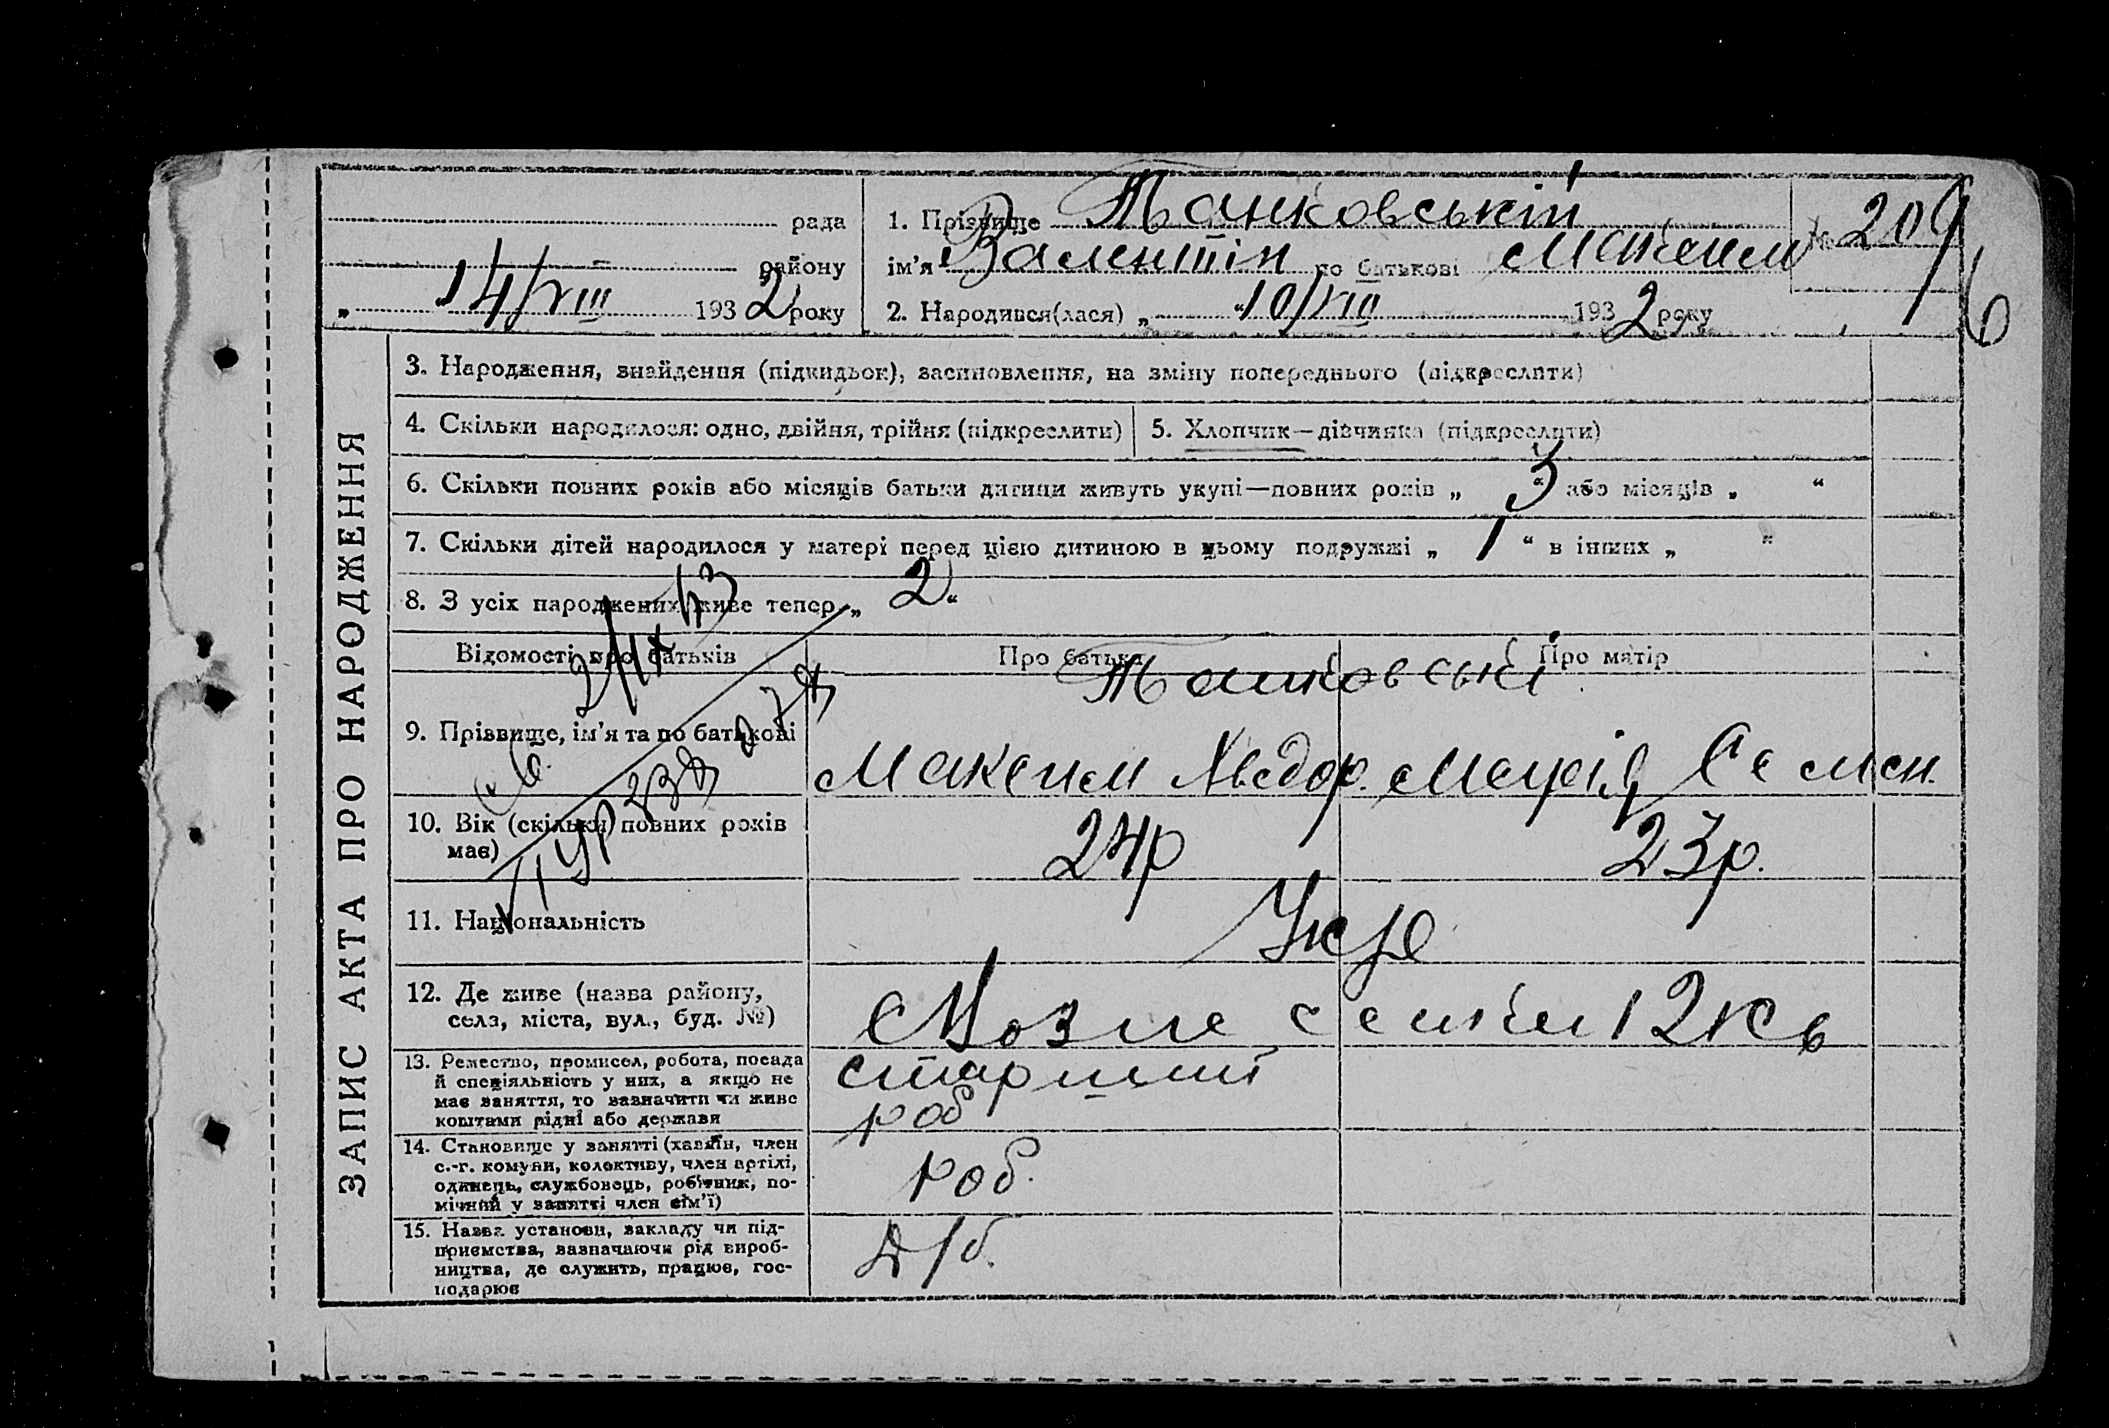 рада
1. Прізвище Танковський
№ 209
району
ім'я Валентін по батькові Максим
„ 14/VIII 1932 року
2. Народився(лася) „ 10/VIII 1932 року
ЗАПИС АКТА ПРО НАРОДЖЕННЯ
3. Народження, знайдення (підкидьок), засиновлення, на зміну попереднього (підкреслити)
4. Скільки народилося: одно, двійня, трійня (підкреслити)
5. Хлопчик—дівчинка (підкреслити)
6. Скільки повних років або місяців батьки дитини живуть укупі—повних років „ 3 “ або місяців „ “
7. Скільки дітей народилося у матері перед цією дитиною в цьому подружжі „ 1 “ в інших „ “
8. З усіх народжених живе тепер „ 2 “
Відомості про батьків
Про батька
Про матір
Танковські
9. Прізвище, ім'я та по батькові
Максим Хведор.
Марія Семен.
10. Вік (скільки повних років
має)
24р
23р.
11. Національність
Укр
12. Де живе (назва району,
села, міста, вул., буд. №)
13. Ремество, промисел, робота, посада
й спеціяльність у них, а якщо не
має заняття, то зазначити чи живе
коштами рідні або держави
старший
роб
14. Становище у занятті (хазяїн, член
с.-г. комуни, колективу, член артілі,
одинець, службовець, робітник, по-
мічний у занятті член сім'ї)
роб.
15. Назва установи, закладу чи під-
приємства, зазначаючи рід вироб-
ництва, де служить, працює, гос-
подарює